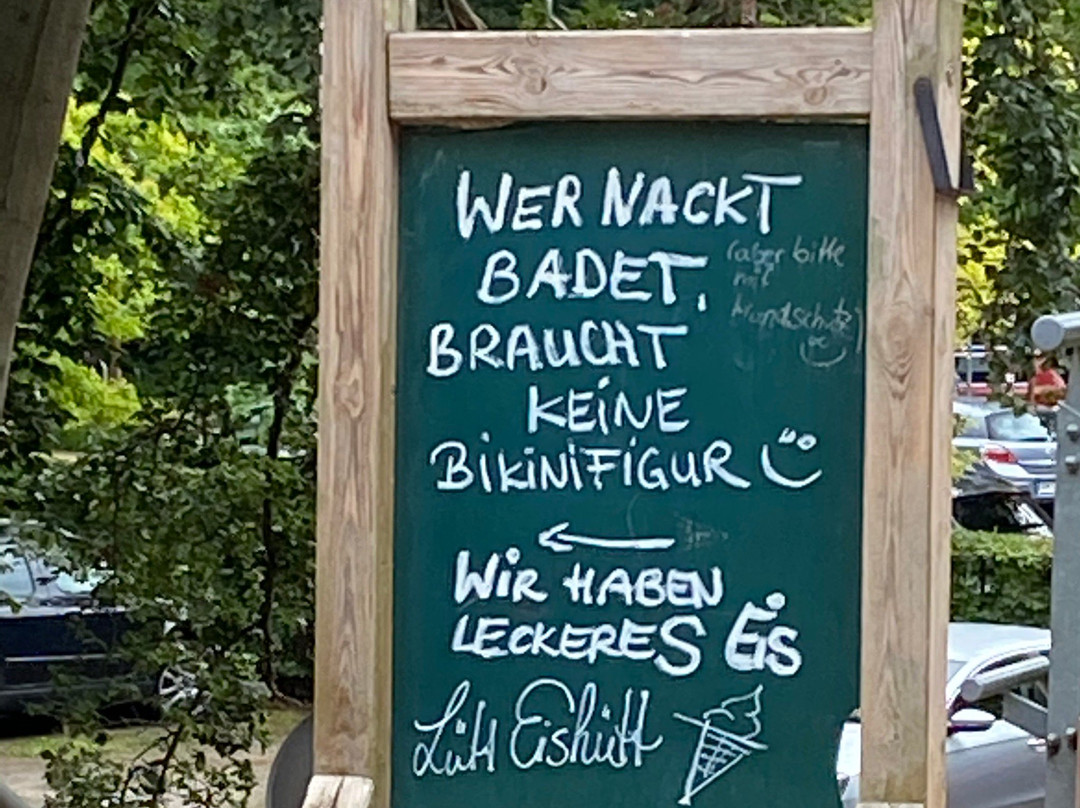 WER NACKT
BADET,
(aber bitte
mit
Mundschutz)
BRAUCHT
KEiNE
BiKiNiFiGUR
WiR HABEN
LECKERES Eis
Lütt Eishütt